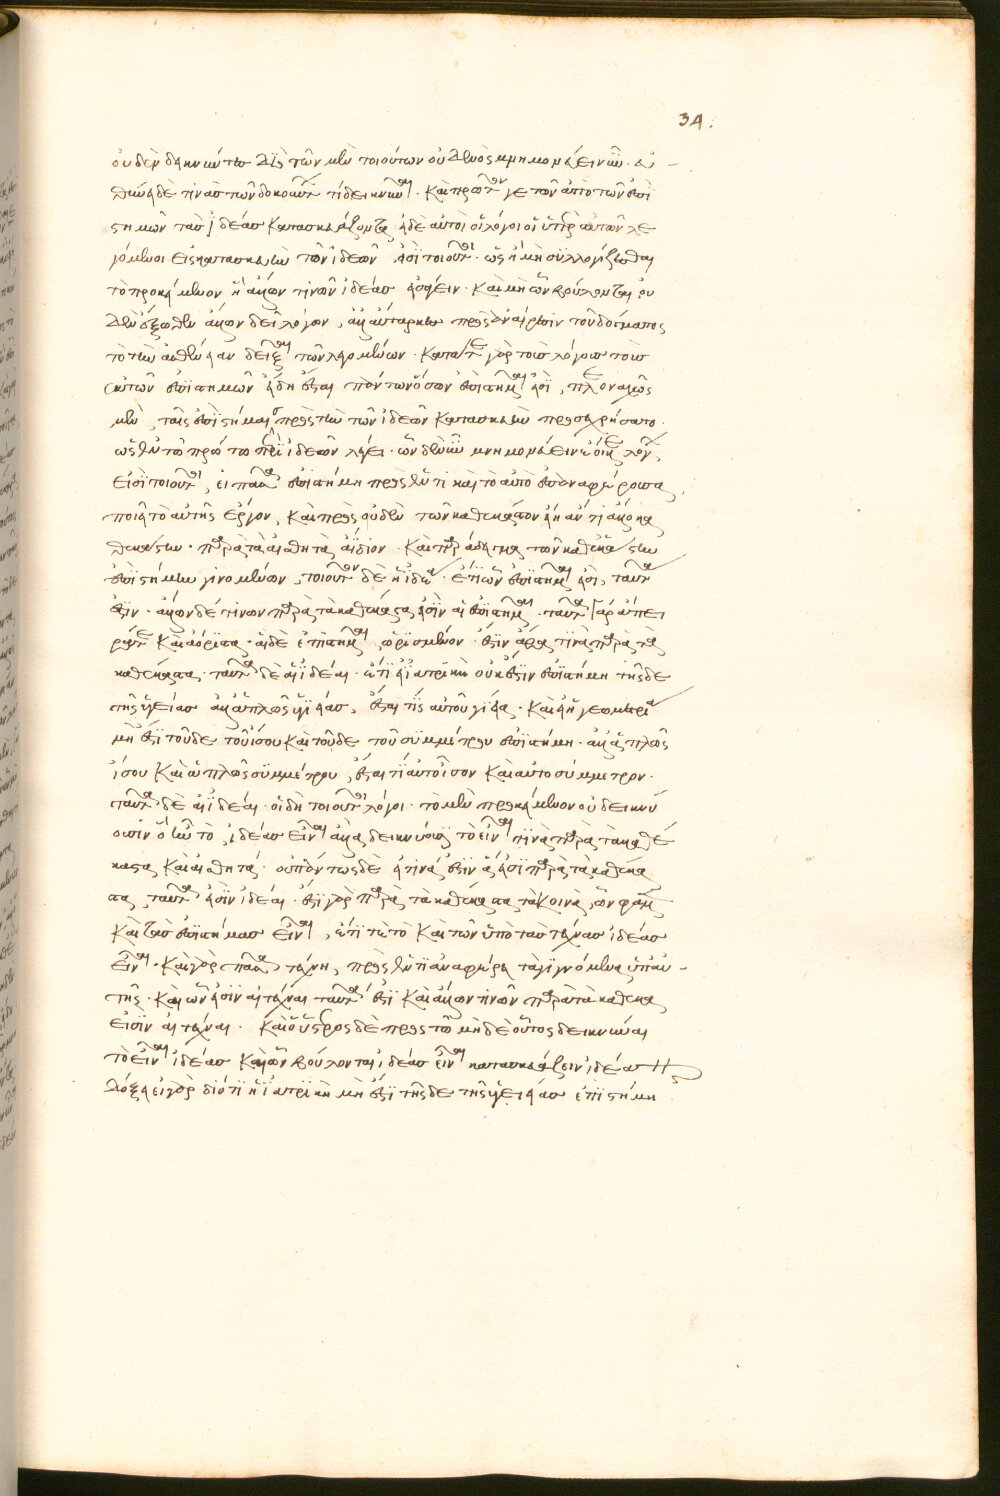 34.
οὐδὲν δεικνύντων διὸ τῶν μὲν τοιούτων οὐδενὸς μνημονεύει νῦν.
τινας τῶν δοκούντων τι δεικνύναι. καὶ πρῶτόν γε τῶν ἀπὸ τῶν ἐπι
στημῶν τὰς ἰδέας κατασκευάζονται. αἱ δὲ αὐτοὶ οἱ λόγοι οἱ ὑπὲρ αὐτῶν λε
γόμενοι εἰς κατασκευὴν τῶν ἰδεῶν εἰσὶ τοιοῦτοι. ὡς ἢ μὴ συλλογίζεσθαι
τὸ προκείμενον ἢ ἄλλων τινῶν ἰδέας εἰσάγειν. καὶ μὴ ὧν βούλονται οὐ
δὲν ἔξωθεν ἄλλων δεῖ λόγων, ἀλλ' αὐτάρκων πρὸς ἀναίρεσιν τοῦ δόγματος
τὸ τὴν ἀσθένειαν δεῖξαι τῶν λεγομένων. κατά τε γὰρ τοὺς λόγους τοὺς
ἐκ τῶν ἐπιστημῶν εἴδη ἔσται πάντων ὅσων ἐπιστῆμαι εἰσὶ, πλεοναχῶς
μὲν ταῖς ἐπιστήμαις πρὸς τὴν τῶν ἰδεῶν κατασκευὴν προσεχρήσαντο.
ὡς ἐν τῷ πρώτῳ περὶ ἰδεῶν λέγει. ὧν δὲ νῦν μνημονεύειν ἔοικε λόγων,
εἰσὶ τοιοῦτοι, εἰ πᾶσα ἐπιστήμη πρὸς ἕν τι καὶ τὸ αὐτὸ ἐπαναφέρουσα
ποιεῖ τὸ αὑτῆς ἔργον, καὶ πρὸς οὐδὲν τῶν καθέκαστον εἴη ἄν τι ἄλλο κα
θ' ἑκάστην. παρὰ τὰ αἰσθητὰ, ἀΐδιον. καὶ παράδειγμα τῶν καθεκάστην
ἐπιστήμην γινομένων, τοιοῦτον δὲ ἡ ἰδέα. ἔτι ὧν ἐπιστῆμαι εἰσὶ, ταῦτα
ἔστιν. ἄλλων δέ τινων παρὰ τὰ καθέκαστα εἰσὶν αἱ ἐπιστῆμαι. ταῦτα γὰρ ἄπει
ρά τε καὶ ἀόριστα. αἱ δὲ ἐπιστῆμαι ὡρισμένων. ἔστιν ἄρα τινὰ παρὰ τὰ
καθέκαστα. ταῦτα δὲ αἱ ἰδέαι. ἔτι εἰ ἡ ἰατρικὴ οὐκ ἔστιν ἐπιστήμη τῆσδε
τῆς ὑγείας ἀλλ' ἁπλῶς ὑγείας, ἔσται τις αὐτουγίεια. καὶ εἰ ἡ γεωμετρία
μή ἐστι τοῦδε τοῦ ἴσου καὶ τοῦδε τοῦ συμμέτρου ἐπιστήμη. ἀλλ' ἁπλῶς
ἴσου καὶ ἁπλῶς συμμέτρου, ἔσται τι αὐτοίσον καὶ αὐτοσύμμετρον.
ταῦτα δὲ αἱ ἰδέαι. οἱ δὴ τοιοῦτοι λόγοι. τὸ μὲν προκείμενον οὐ δεικνύ
ουσιν ὃ ἦν τὸ ἰδέας εἶναι ἀλλὰ δεικνύουσι τὸ εἶναί τινα παρὰ τὰ καθέ
καστα καὶ αἰσθητά. οὐ πάντως δὲ εἴ τινά ἐστιν ἅ εἰσι παρὰ τὰ καθέκα
στα, ταῦτα εἰσὶν ἰδέαι. ἔστι γὰρ παρὰ τὰ καθέκαστα τὰ κοινά, ὧν φαμὲν
καὶ τὰς ἐπιστήμας εἶναι, ἔτι τε τὸ καὶ τῶν ὑπὸ τὰς τέχνας ἰδέας
εἶναι. καὶ γὰρ πᾶσα τέχνη, πρὸς ἕν τι ἀναφέρει τὰ γιγνόμενα ὑπ' αὐ-
τῆς. καὶ ὧν εἰσὶν αἱ τέχναι ταῦτα ἔστι καὶ ἄλλων τινῶν παρὰ τὰ καθέκαστα
εἰσὶν αἱ τέχναι. καὶ ὁ ὕστερος δὲ πρὸς τῷ μηδὲ οὗτος δεικνύναι
τὸ εἶναι ἰδέας καὶ ὧν βούλονται ἰδέας εἶναι κατασκευάζειν ἰδέας
δόξει εἰ γὰρ διότι ἡ ἰατρικὴ μή ἐστι τῆσδε τῆς ὑγείας ἐπιστήμη